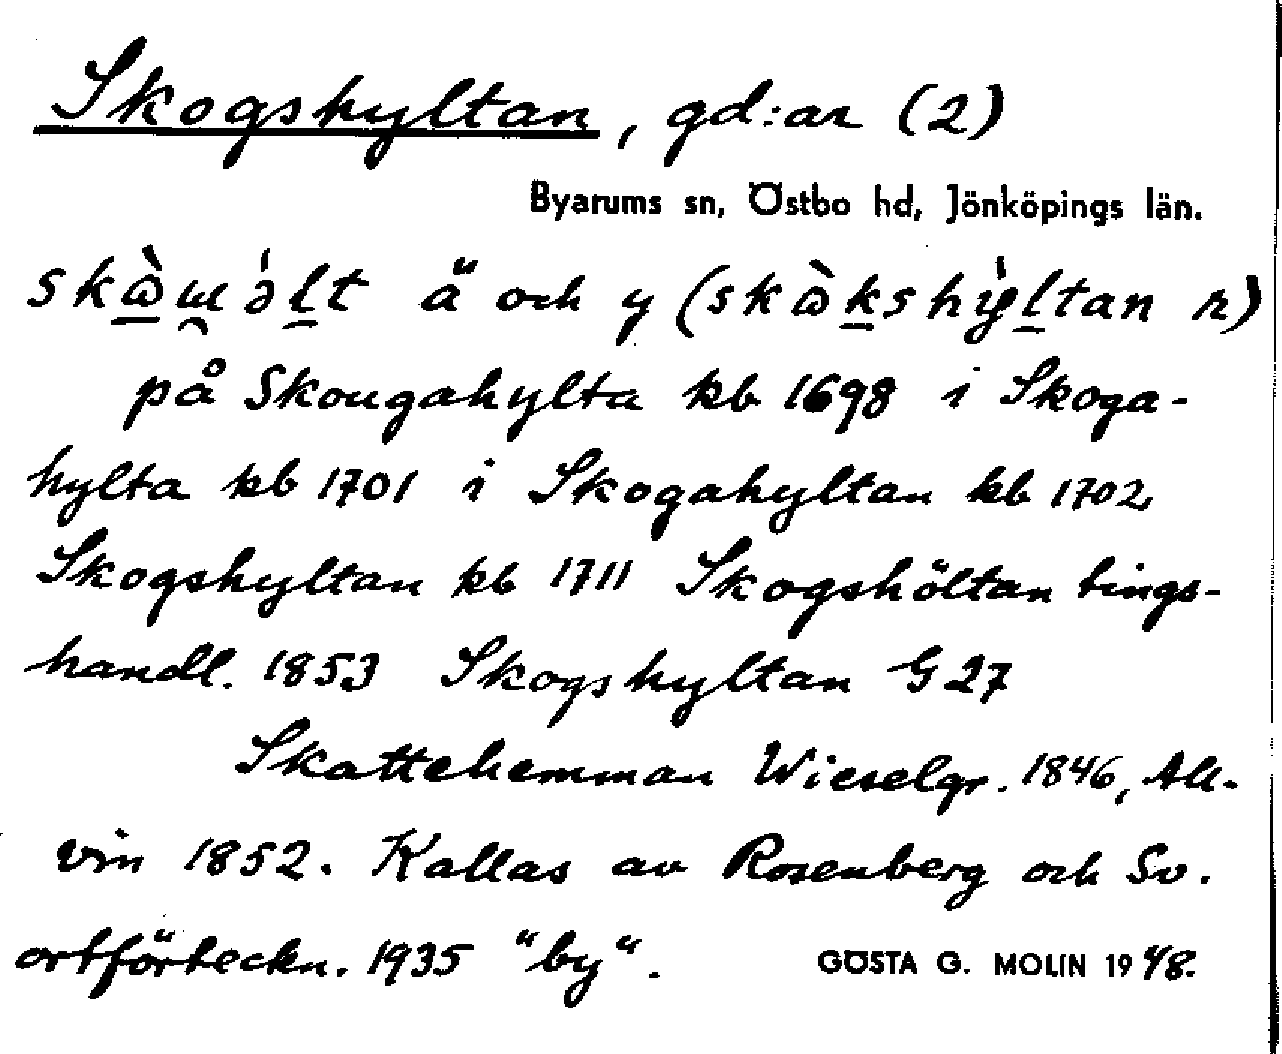 Skogshyltan, gd:ar (2)
Byarums sn, Östbo hd, Jönköpings län.
ä och y (skɷ̀kshy̍ltan r)
på Skougahylta kb 1698 i Skoga-
hylta kb 1701 i Skogahyltan kb 1702
Skogshyltan kb 1711 Skogshöltan tings-
handl. 1853 Skogshyltan G 27
Skattehemman Wieselgr. 1846, All-
vin 1852. Kallas av Rosenberg och Sv.
ortförteckn. 1935 "by".
GÖSTA G. MOLIN 1948.